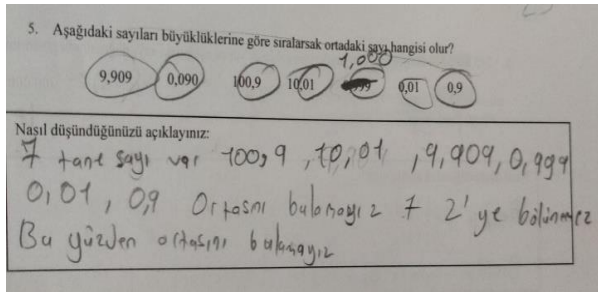 5. Aşağıdaki sayıları büyüklüklerine göre sıralarsak ortadaki sayı hangisi olur?
1,000
9,909 0,090 100,9 10,01 999 0,01 0,9
Nasıl düşündüğünüzü açıklayınız:
7 tane sayı var 100,9 , 10,01 , 9,909, 0,999
0,01 , 0,9 Ortasnı bulamayız 7 2'ye bölünmez
Bu yüzden ortasını bulamayız